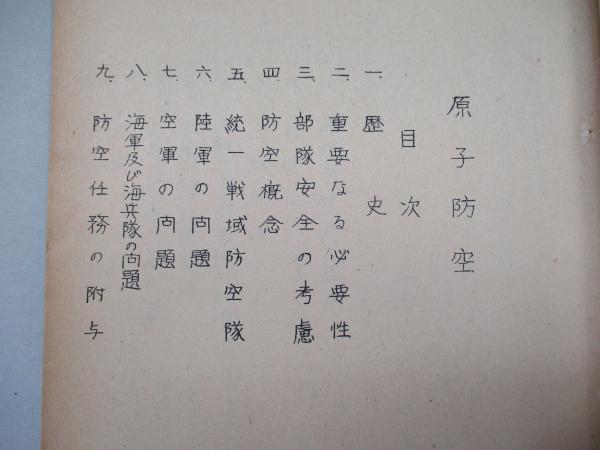 原子防空
目次
一、歴史
二、重要なる必要性
三、部隊安全の考慮
四、防空概念
五、統一戦域防空隊
六、陸軍の問題
七、空軍の問題
八、海軍及び海兵隊の問題
九、防空任務の附与